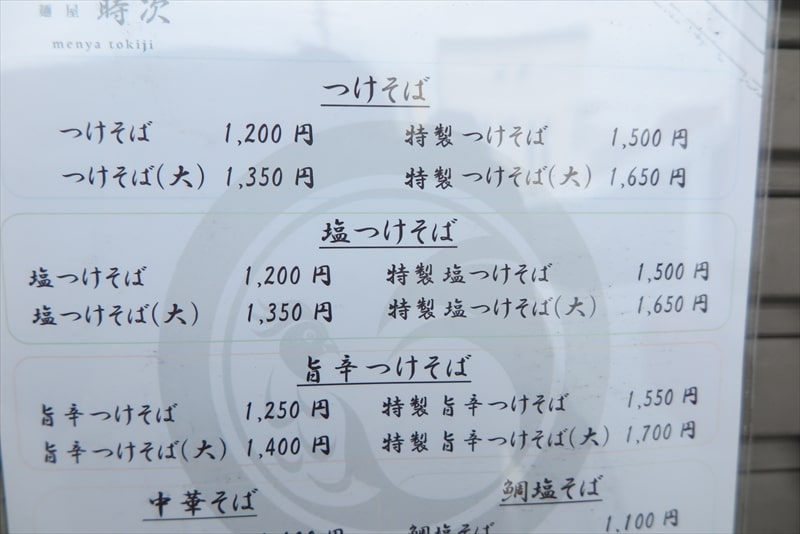 麺屋 時次
menya tokiji
つけそば
つけそば 1,200 円 特製つけそば 1,500 円
つけそば(大) 1,350 円 特製つけそば(大) 1,650 円
塩つけそば
塩つけそば 1,200 円 特製塩つけそば 1,500 円
塩つけそば(大) 1,350 円 特製塩つけそば(大) 1,650 円
旨辛つけそば
旨辛つけそば 1,250 円 特製旨辛つけそば 1,550 円
旨辛つけそば(大) 1,400 円 特製旨辛つけそば(大) 1,700 円
中華そば 鯛塩そば
鯛塩そば 1,100 円